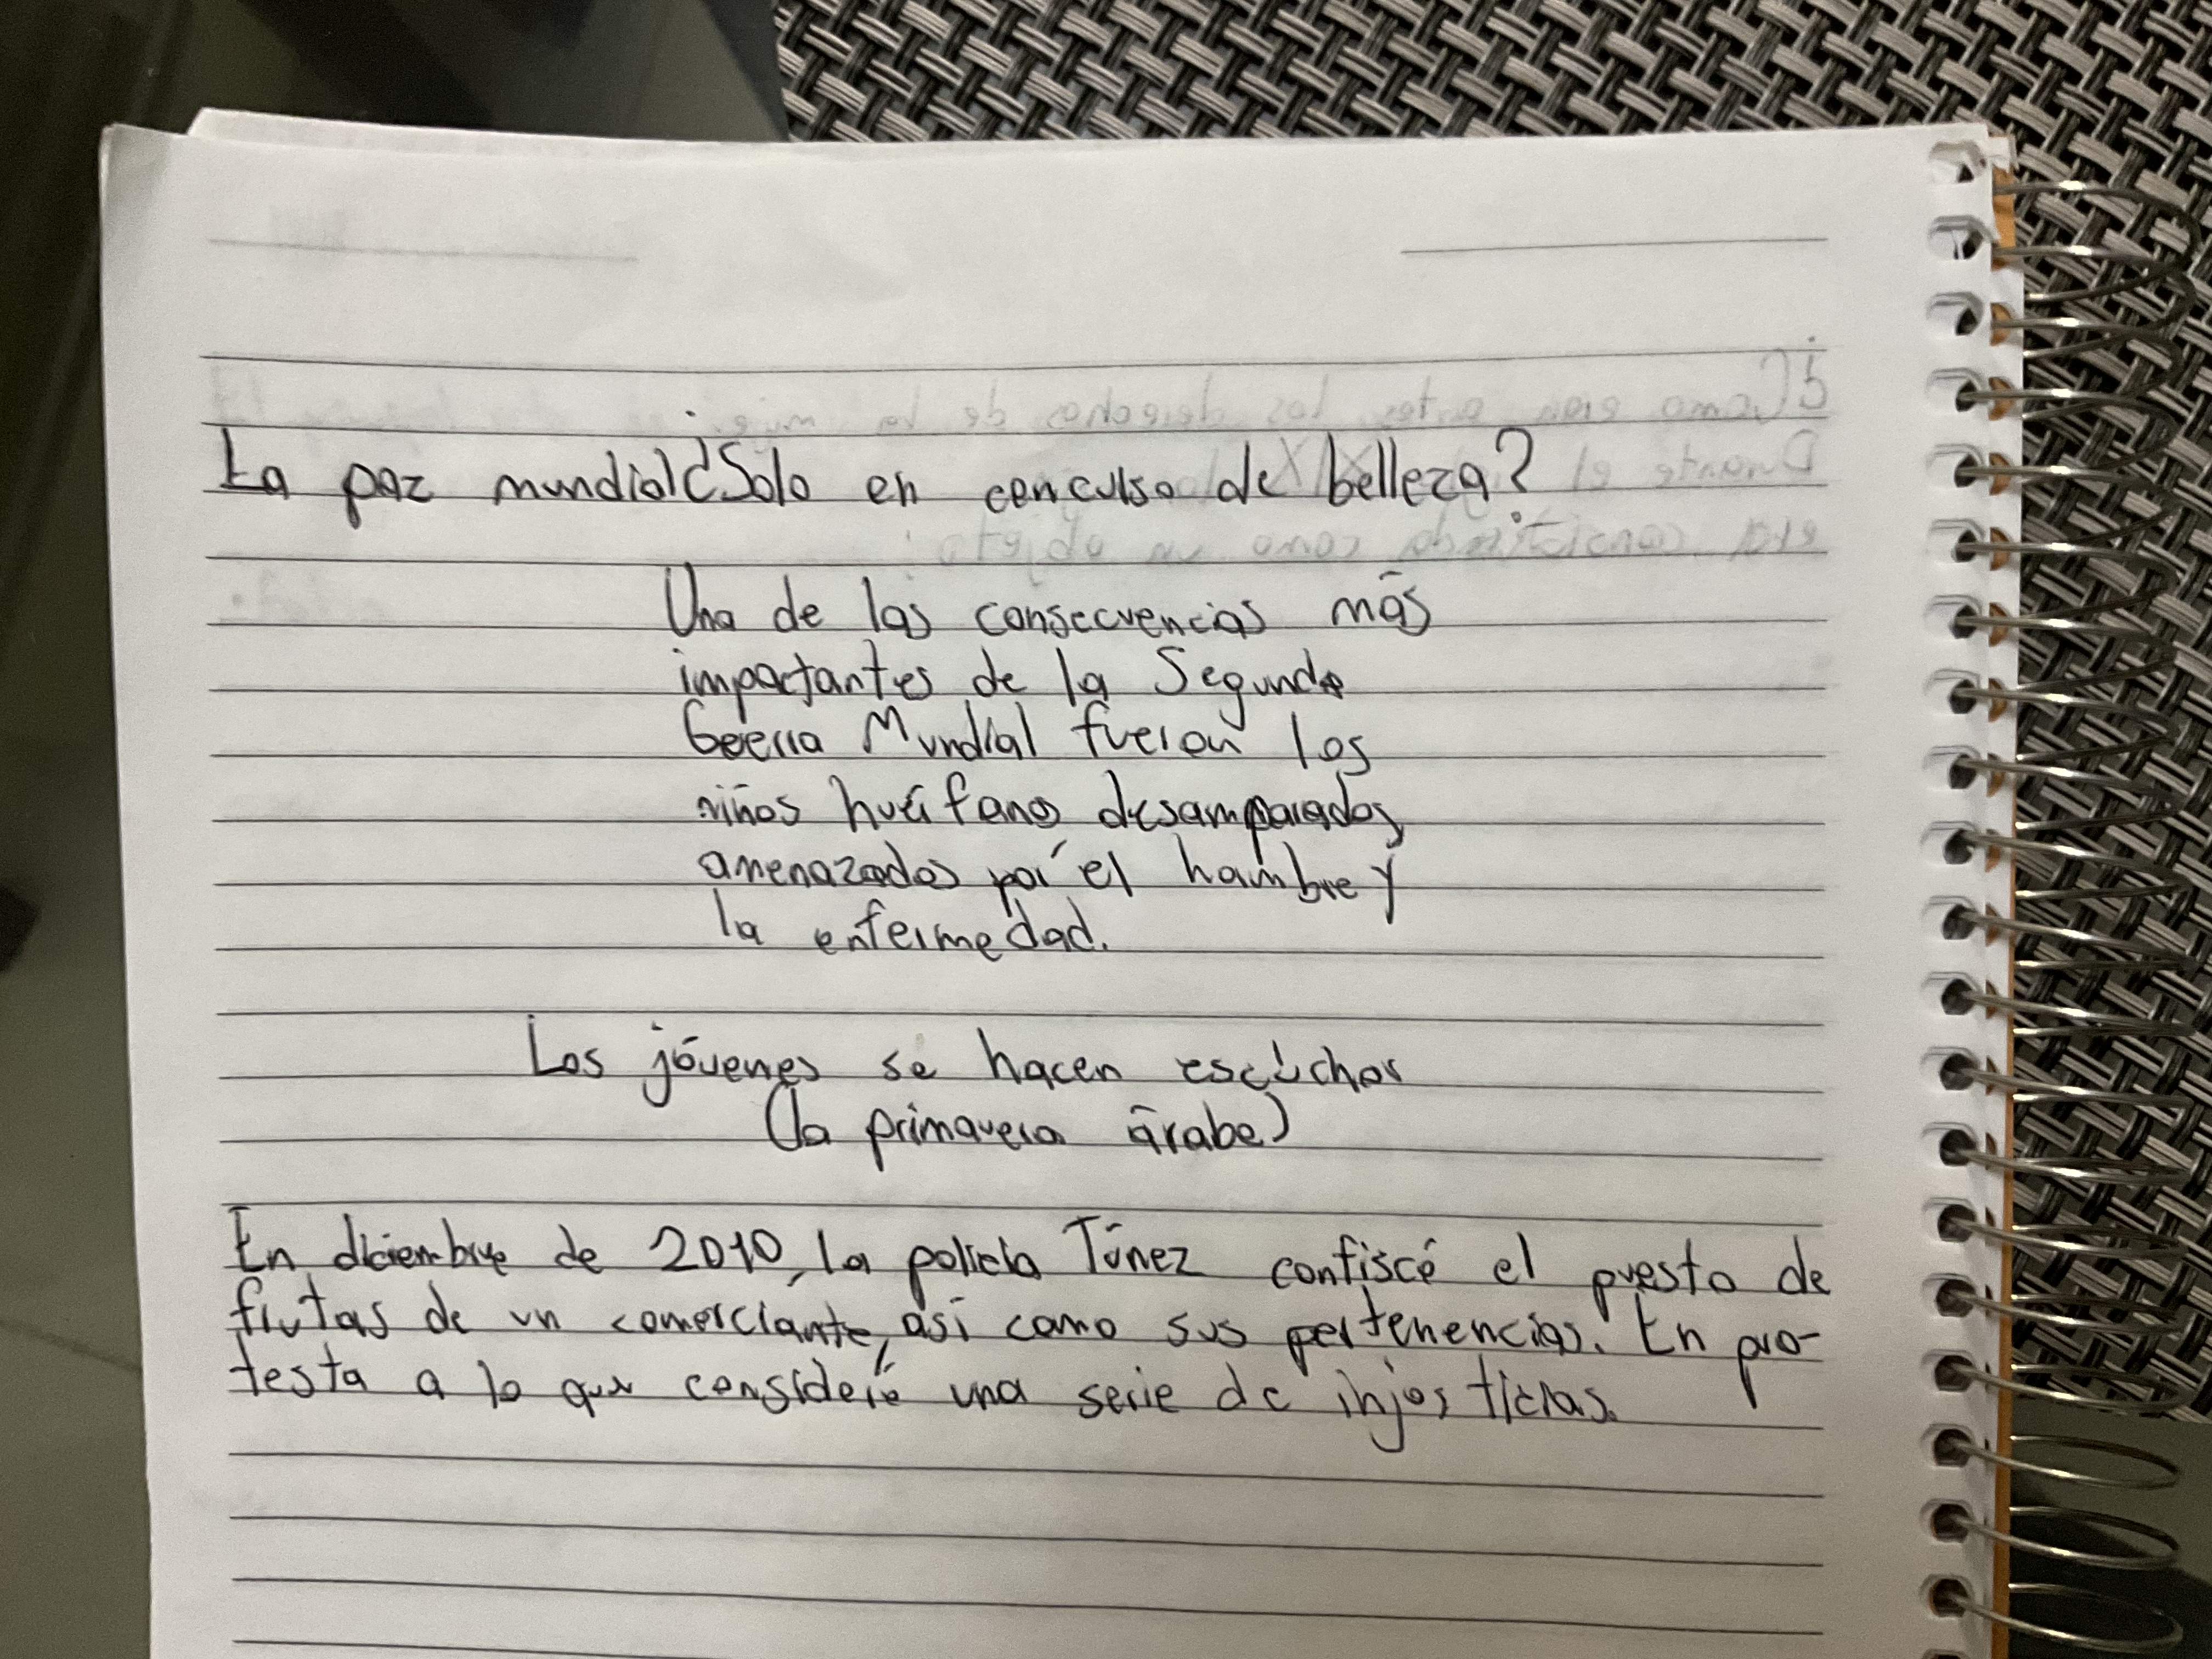 La paz mundial ¿Solo en conculso de belleza?
Una de las consecuencias más
impactantes de la Segunda
Geerra Mundial fueron los
niños huérfanos desamparados,
amenazados por el hambre y
la enfermedad.
Los jóvenes se hacen escuchar
(la primavera árabe)
En diciembre de 2010, la policía Túnez confiscó el puesto de
frutas de un comerciante, así como sus pertenencias. En pro-
testa a lo que consideró una serie de injosticias.
¿Como eran antes los derechos de la
Durante el
era como un objeto